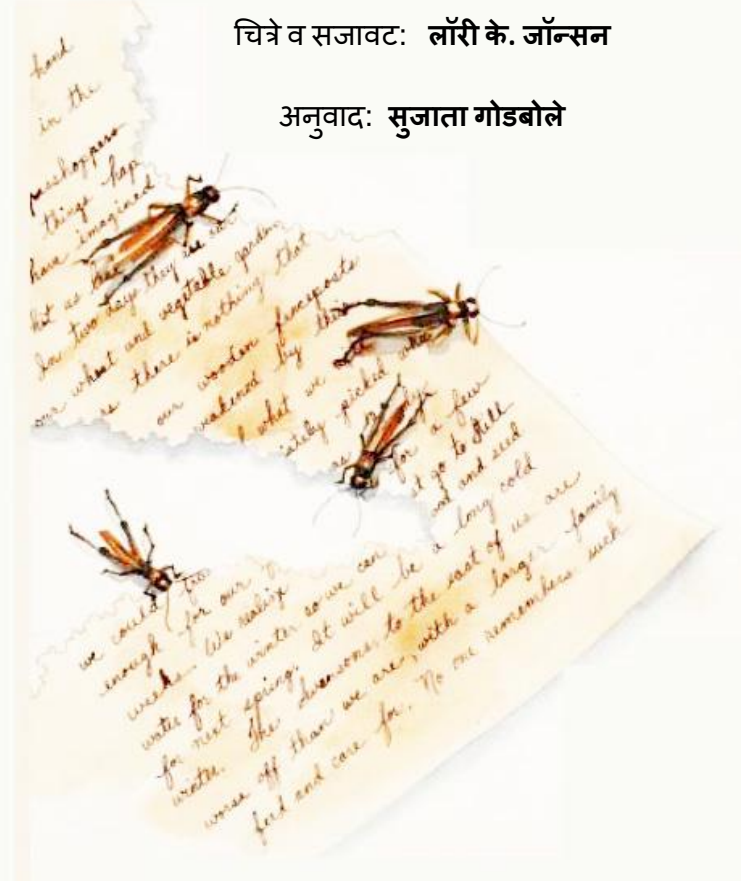 चित्रे व सजावट: लॉरी के. जॉन्सन
अनुवाद: सुजाता गोडबोले
hand
in the
grasshoppers
things hap
have imagined
hot as
In two days they
our wheat and vegetable garden
as there is nothing that
our wooden fenceposts
weakened by the
what we
picked
for a few
go to
and seed
we could
enough for our
weeks. We realize
water for the winter so we can
for next spring. It will be a long cold
winter. The Swensons, to the east of us are
worse off than we are, with a larger family
feed and care for. No one remembers such